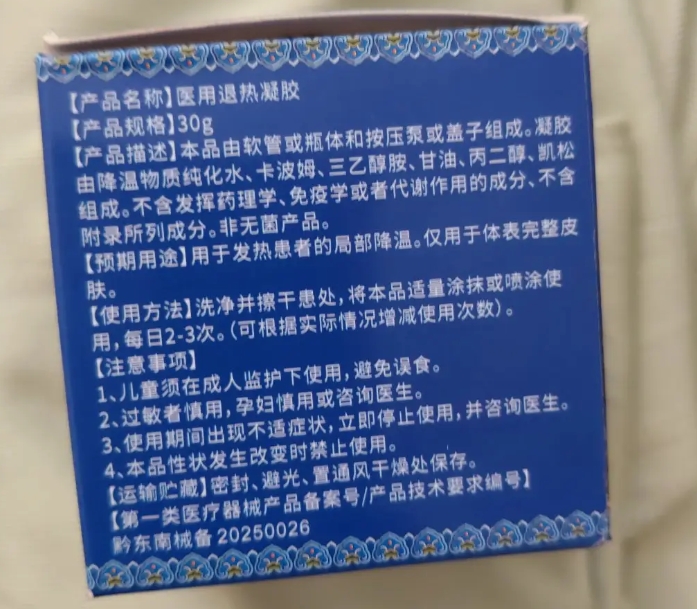 【产品名称】医用退热凝胶
【产品规格】30g
【产品描述】本品由软管或瓶体和按压泵或盖子组成。凝胶
由降温物质纯化水、卡波姆、三乙醇胺、甘油、丙二醇、凯松
组成。不含发挥药理学、免疫学或者代谢作用的成分、不含
附录所列成分。非无菌产品。
【预期用途】用于发热患者的局部降温。仅用于体表完整皮
肤。
【使用方法】洗净并擦干患处,将本品适量涂抹或喷涂使
用,每日2-3次。(可根据实际情况增减使用次数)。
【注意事项】
1、儿童须在成人监护下使用,避免误食。
2、过敏者慎用,孕妇慎用或咨询医生。
3、使用期间出现不适症状,立即停止使用,并咨询医生。
4、本品性状发生改变时禁止使用。
【运输贮藏】密封、避光、置通风干燥处保存。
【第一类医疗器械产品备案号/产品技术要求编号】
黔东南械备20250026